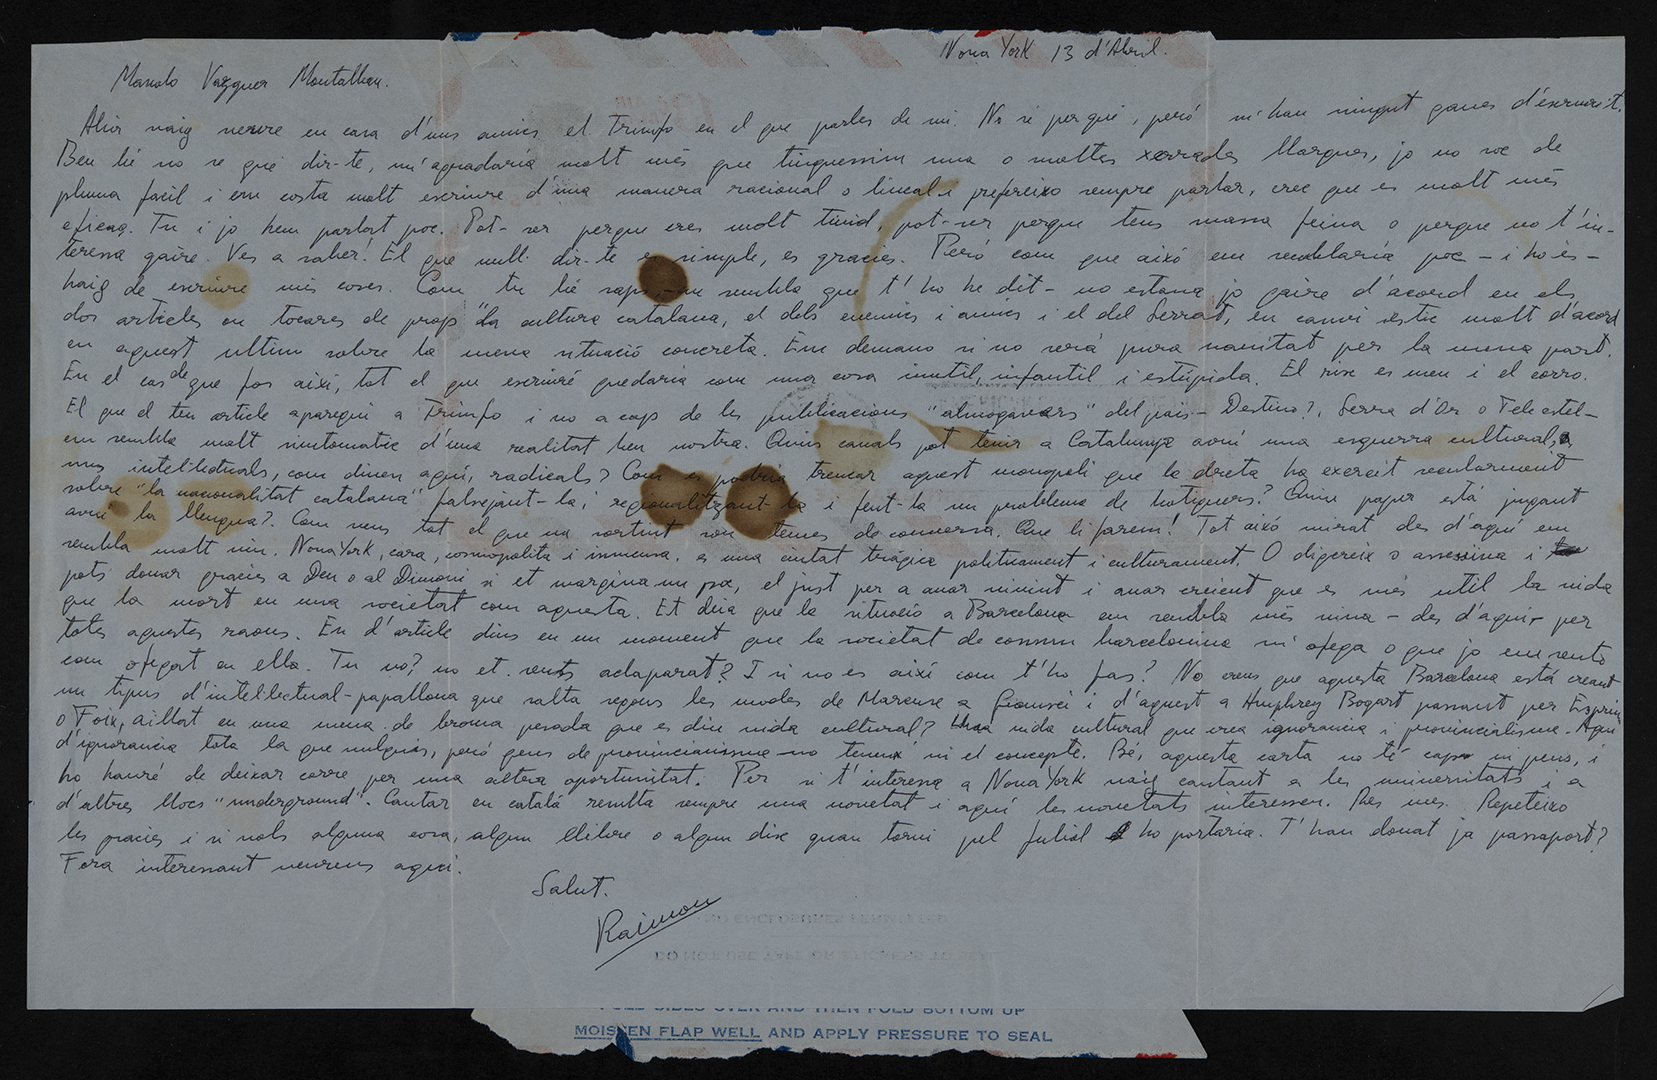 Nova York 13 d'Abril.
Manolo Vazquez Montalban.
Ahir vaig veure en casa d'uns amics el Triunfo en el que parles de mi. No sé perqué, peró m'han vingut ganes d'escriure't.
Ben bé no se qué dir-te, m'agradaría molt més que tinguessim una o moltes xerrades llargues, jo no soc de
pluma facil i em costa molt escriure d'una manera racional o lineal i prefereixo sempre parlar, crec que es molt més
eficaç. Tu i jo hem parlat poc. Pot-ser perque eres molt timid, pot-ser perque tens massa feina o perque no t'in-
teressa gaire. Ves a saber! El que vull dir-te es simple, es gracies. Peró com que aixó em semblaría poc - i ho és -
haig de escriure més coses. Com tu bé saps -em sembla que t'ho he dit- no estava jo gaire d'acord en els
dos articles on tocares de prop "la cultura catalana, el dels enemics i amics i el del Serrat, en canvi estic molt d'acord
en aquest ultim sobre la meva situació concreta. Em demano si no será pura vanitat per la meva part.
En el cas de que fos aixi, tot el que escriuré quedaria com una cosa inutil, infantil i estúpida. El risc es meu i el corro.
El que el teu article aparegui a Triunfo i no a cap de les publicacions "almogavars" del pais - Destino?, Serra d'Or o Tele estel -
em sembla molt simtomatic d'una realitat ben nostra. Quins canals pot tenir a Catalunya avui una esquerra cultural,
uns intel·lectuals, com diuen aquí, radicals? Com es podria trencar aquest monopoli que la dreta ha exercit secularment
sobre "la nacionalitat catalana" falsejant-la, i regionalitzant-la i fent-la un problema de botiguers? Quin paper está jugant
avui la llengua?. Com veus tot el que va sortint son temes de conversa. Que li farem! Tot aixó mirat des d'aquí em
sembla molt viu. Nova York, cara, cosmopolita i inmensa, es una ciutat trágica politicament i culturament. O digereix o assessina i
pots donar gracies a Deu o al Dimoni si et margina un poc, el just per a anar vivint i anar creient que es més util la vida
que la mort en una societat com aquesta. Et deia que la situació a Barcelona em sembla més viva - des d'aquí - per
totes aquestes raons. En l'article dius en un moment que la societat de consum barcelonina m'ofega o que jo em sento
com ofegat en ella. Tu no? no et sents aclaparat? I si no es així com t'ho fas? No creus que aquesta Barcelona está creant
un tipus d'intel·lectual-papallona que salta segons les modes de Marcuse a Gramsci i d'aquest a Humphrey Bogart passant per Espriu
o Foix, aillat en una mena de broma pesada que es diu vida cultural? Una vida cultural que crea ignorancia i provincialisme. Aquí
d'ignorancia tota la que vulguis, peró gens de provincianisme - no tenen ni el concepte. Bé, aquesta carta no té cap ni peus, i
ho hauré de deixar corre per una altera oportunitat. Per si t'interessa a Nova York vaig cantant a les universitats i a
d'altres llocs "underground". Cantar en catalá resulta sempre una novetat i aquí les novetats interessen. Res mes. Repeteixo
les gracies i si vols alguna cosa, algun llibre o algun disc quan torni pel Juliol ho portaria. T'han donat ja passaport?
Fora interessant veurens aquí.
Salut.
Raimon
NO ENCLOSURES PERMITTED
DO NOT USE TAPE OR STICKERS TO SEAL
FOLD SIDES OVER AND THEN FOLD BOTTOM UP
MOISTEN FLAP WELL AND APPLY PRESSURE TO SEAL